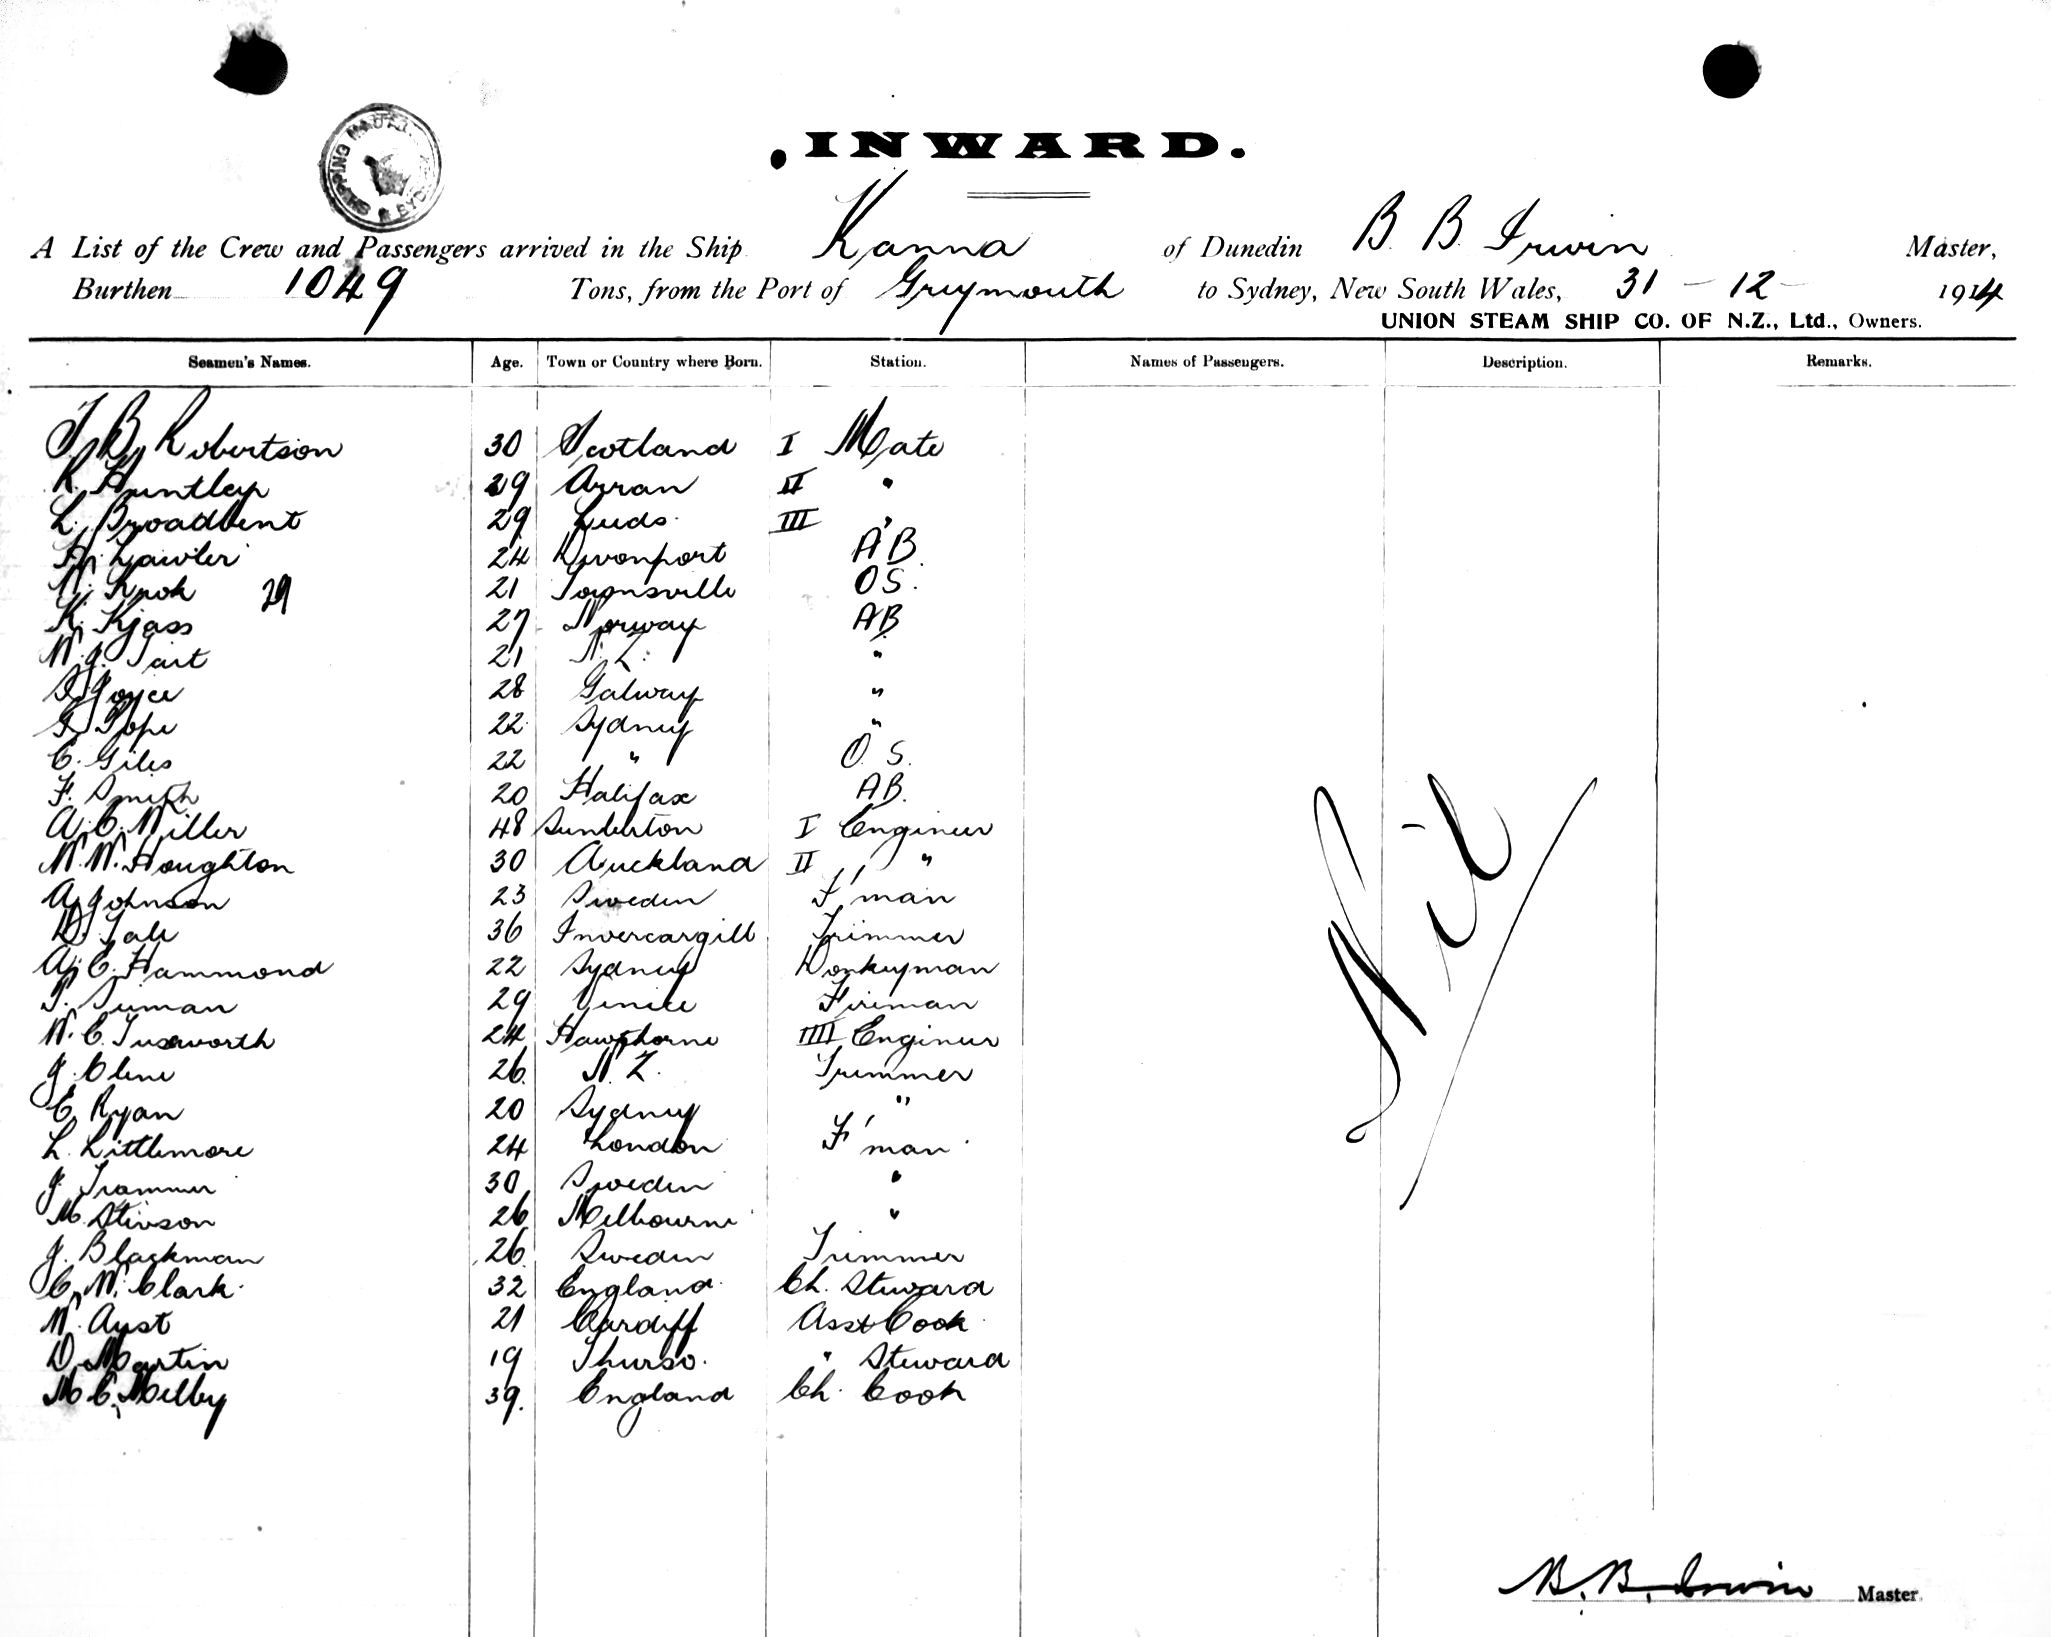 SHIPPING SYD
. INWARD.
A List of the Crew and Passengers arrived in the Ship Kanna of Dunedin B. B. Irwin Master,
Burthen 1049 Tons, from the Port of Greymouth to Sydney, New South Wales, 31 - 12 - 1914
UNION STEAM SHIP CO. OF N.Z., Ltd., Owners.
Seamen's Names. Age. Town or Country where Born. Station. Names of Passengers. Description. Remarks.
J. B. Robertson 30 Scotland I Mate
R. Huntley 29 Arran II "
L. Broadbent 29 Leeds. III "
Lawler 24 Devonport AB
29 21 Townsville O S.
K. Kjass 27 Norway AB
W. J. Tait 21 N. Z. "
Joyce 28 Galway "
Pope 22 Sydney "
C. Giles 22 " O. S.
F. Smith 20 Halifax AB.
A. C. Miller 48 I Engineer
W. W. Houghton 30 Auckland II "
A. Johnson 23 Sweden F'man
36 Invercargill Trimmer
A. C. Hammond 22 Sydney Donkeyman
29 Venice Fireman
W. C. 24 Hawthorne IIII Engineer
J. Clene 26. N. Z. Trimmer
E. Ryan 20 Sydney "
L. Littlemore 24 London F'man
J. 30 Sweden "
M. 26 Melbourne "
J. Blackman 26 Sweden Trimmer
C. W. Clark. 32 England. Ch. Steward
W. 21 Cardiff Asst Cook
D. Martin 19 Thurso. " Steward
M. C. Melby 39. England Ch. Cook
Nil
B. B. Irwin Master.